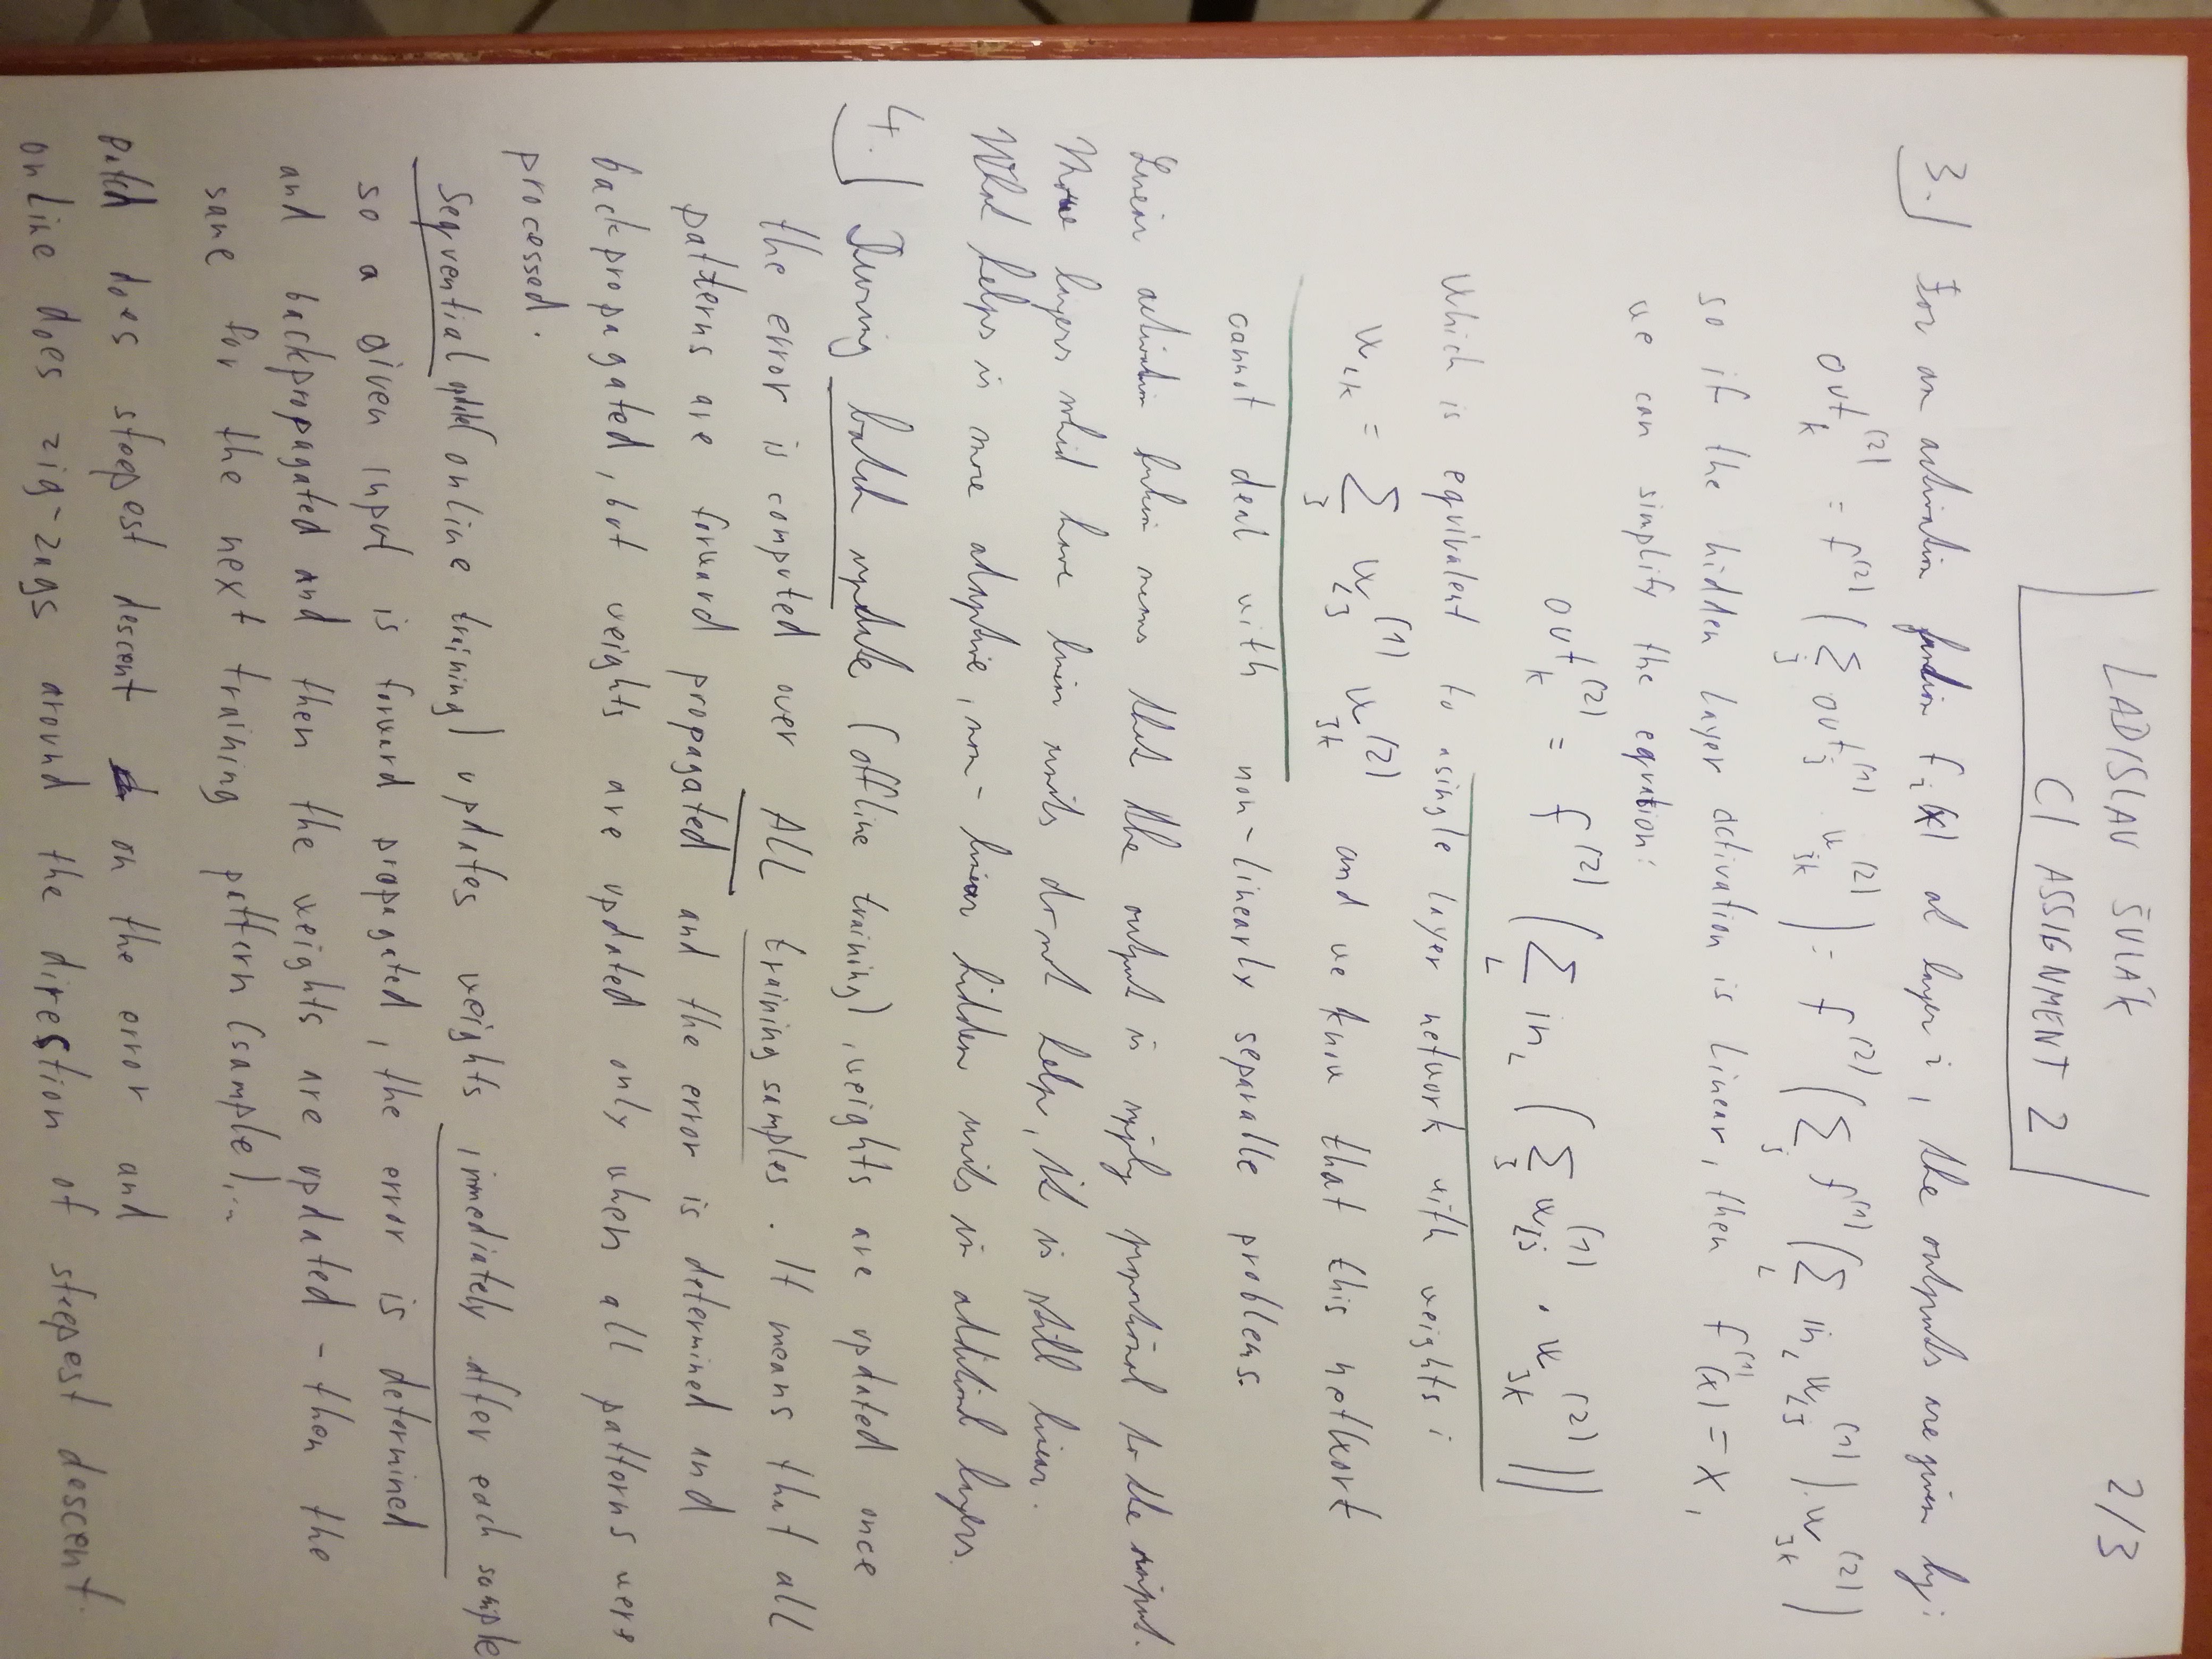 LADISLAV ŠULÁK
2/3
CI ASSIGNMENT 2
3.) For an activation function f_i(x) at layer i, the outputs are given by:
out_k^(2) = f^(2) ( Σ_j out_j^(1) w_jk^(2) ) = f^(2) ( Σ_j f^(1) ( Σ_i in_i w_ij^(1) ) . w_jk^(2) )
so if the hidden layer activation is linear, then f^(1)(x) = x,
we can simplify the equation:
out_k^(2) = f^(2) ( Σ_i in_i ( Σ_j w_ij^(1) · w_jk^(2) ))
which is equivalent to a single layer network with weights :
w_ik = Σ_j w_ij^(1) w_jk^(2) and we know that this network
cannot deal with non-linearly separable problems.
Linear activation means that the output is proportional to the input.
More layers which have linear units do not help, it is still linear.
What helps is more adaptive, non-linear hidden units in additional layers.
4.) During batch update (offline training), weights are updated once
the error is computed over ALL training samples. It means that all
patterns are forward propagated and the error is determined and
backpropagated, but weights are updated only when all patterns were
processed.
Sequential update (online training) updates weights immediately after each sample
so a given input is forward propagated, the error is determined
and backpropagated and then the weights are updated - then the
same for the next training pattern (sample),...
Batch does steepest descent on the error and
online does zig-zags around the direction of steepest descent.